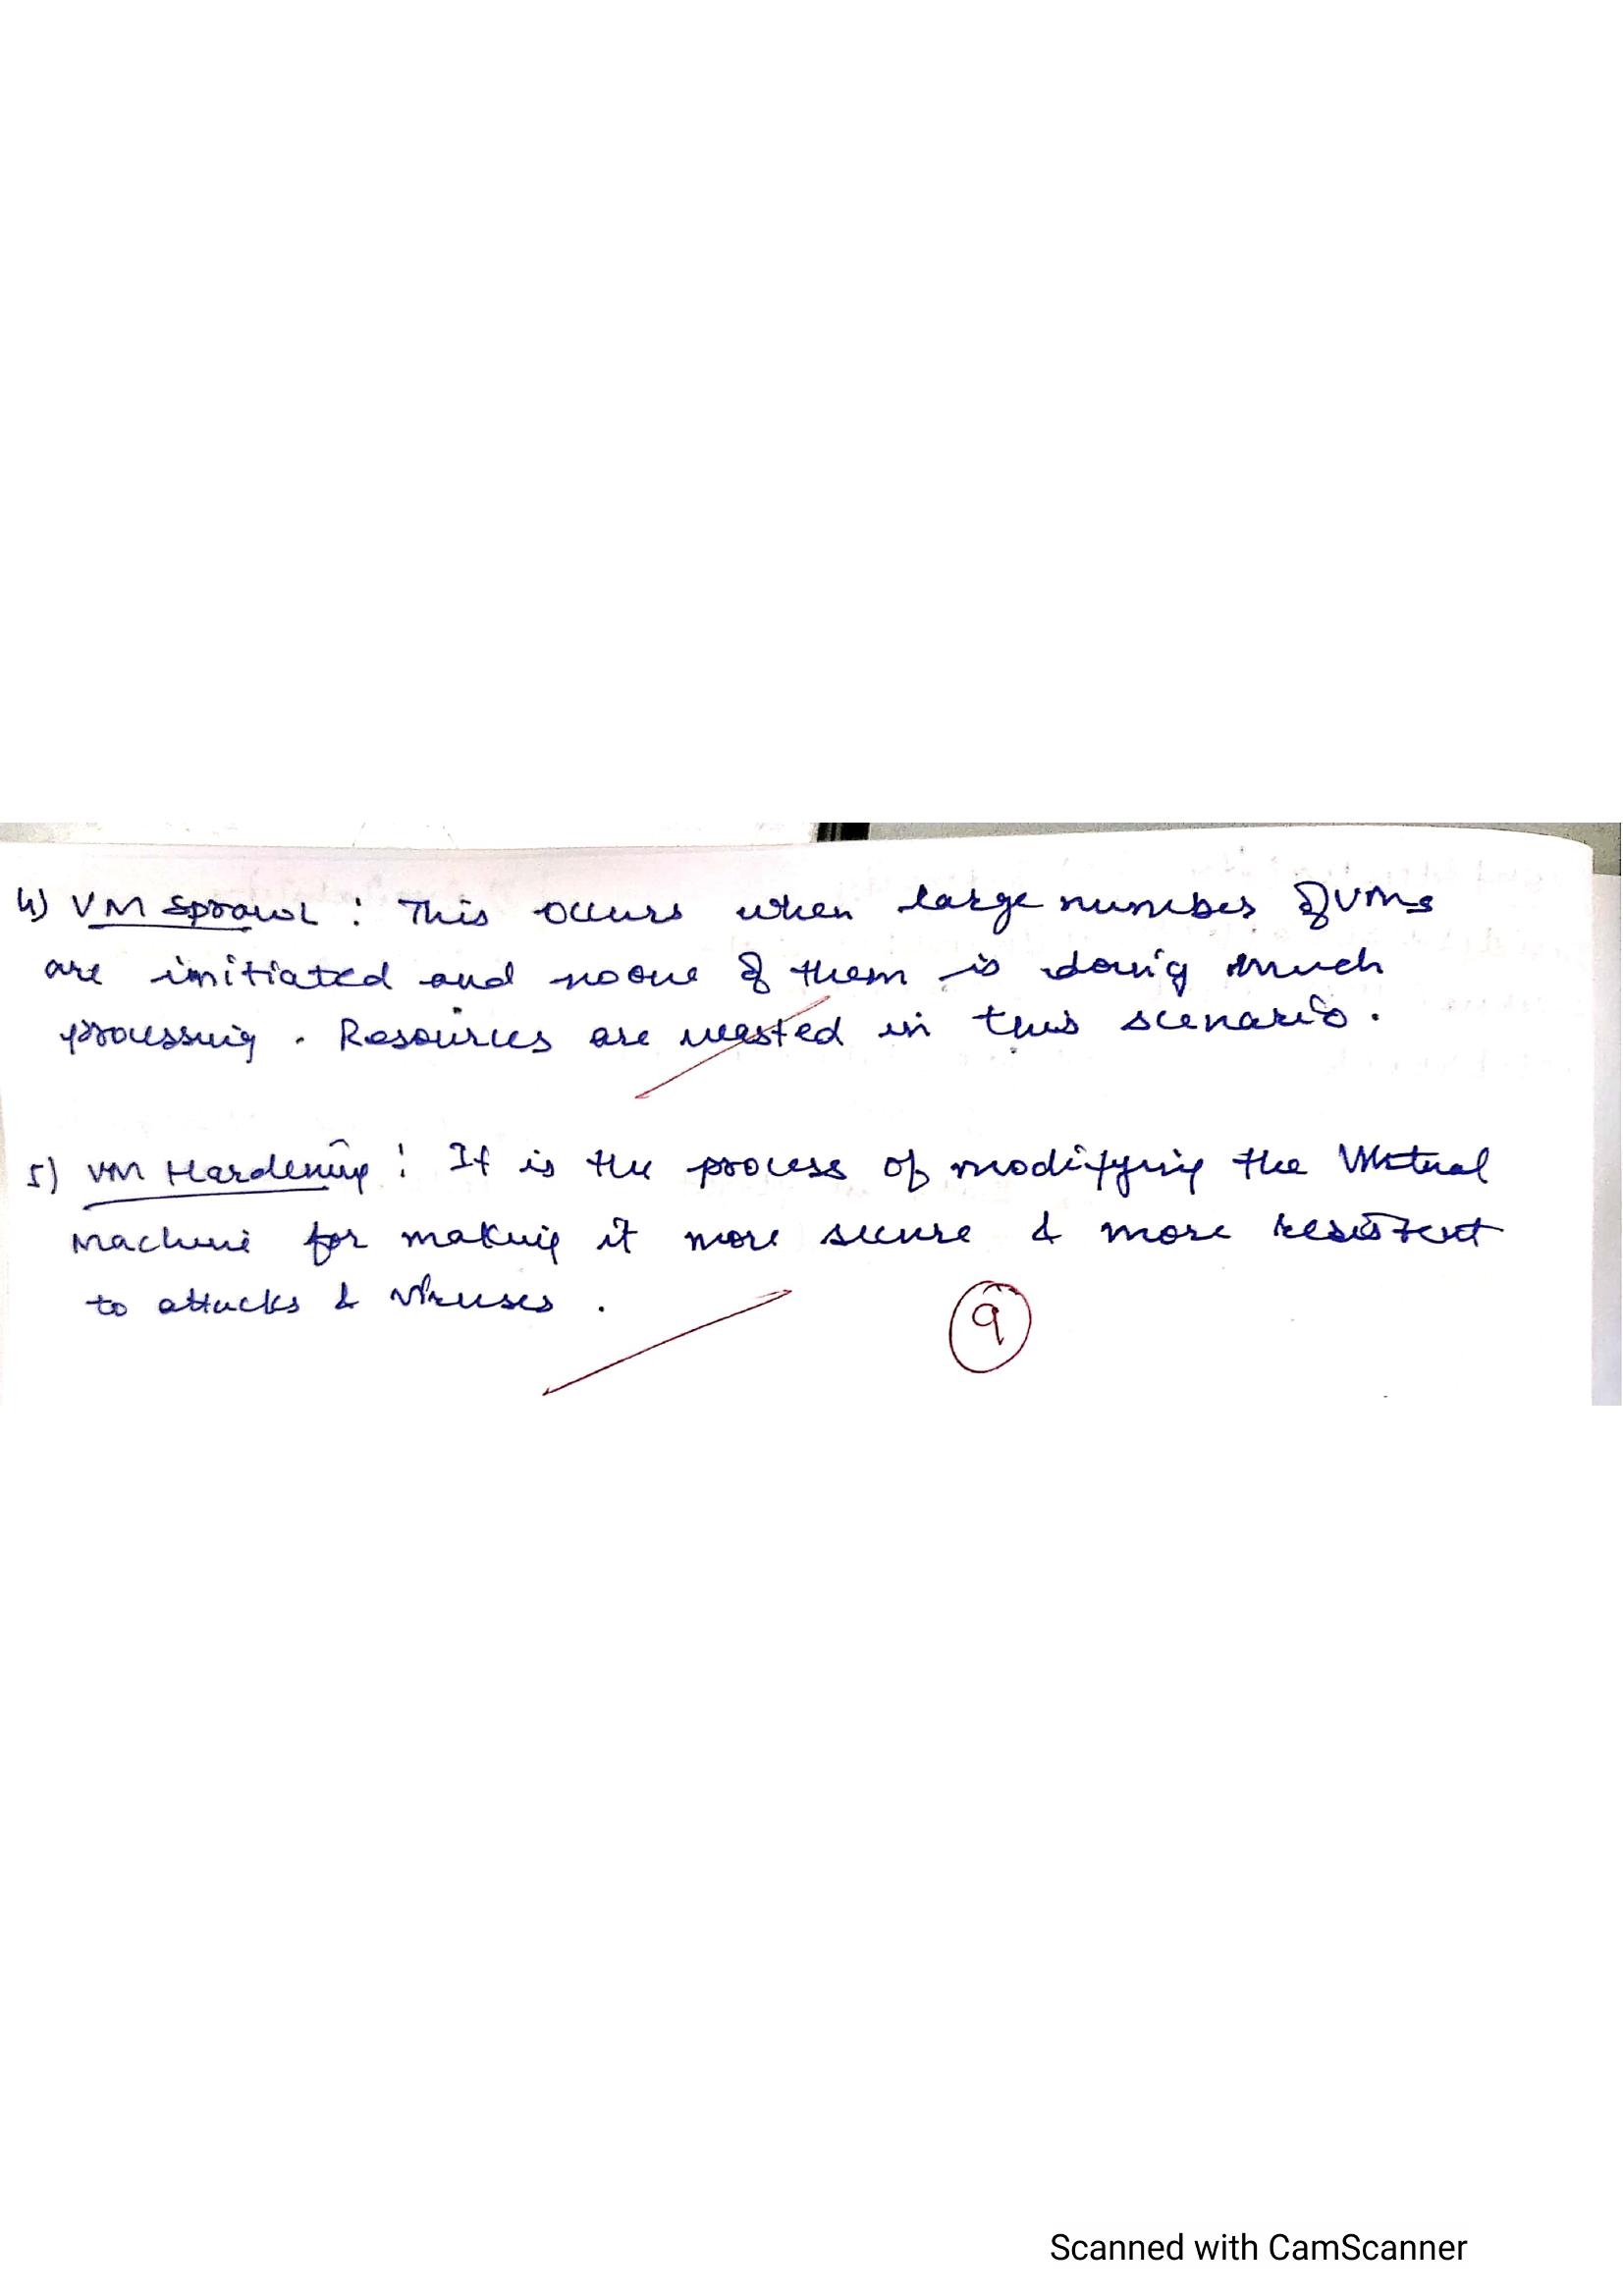 4) VM Sprawl : This occurs when large number of VMs
are initiated and no one of them is doing much
processing . Resources are wasted in this scenario .
5) VM Hardening : It is the process of modifying the Virtual
Machine for making it more secure & more resistent
to attacks & viruses .
9
Scanned with CamScanner